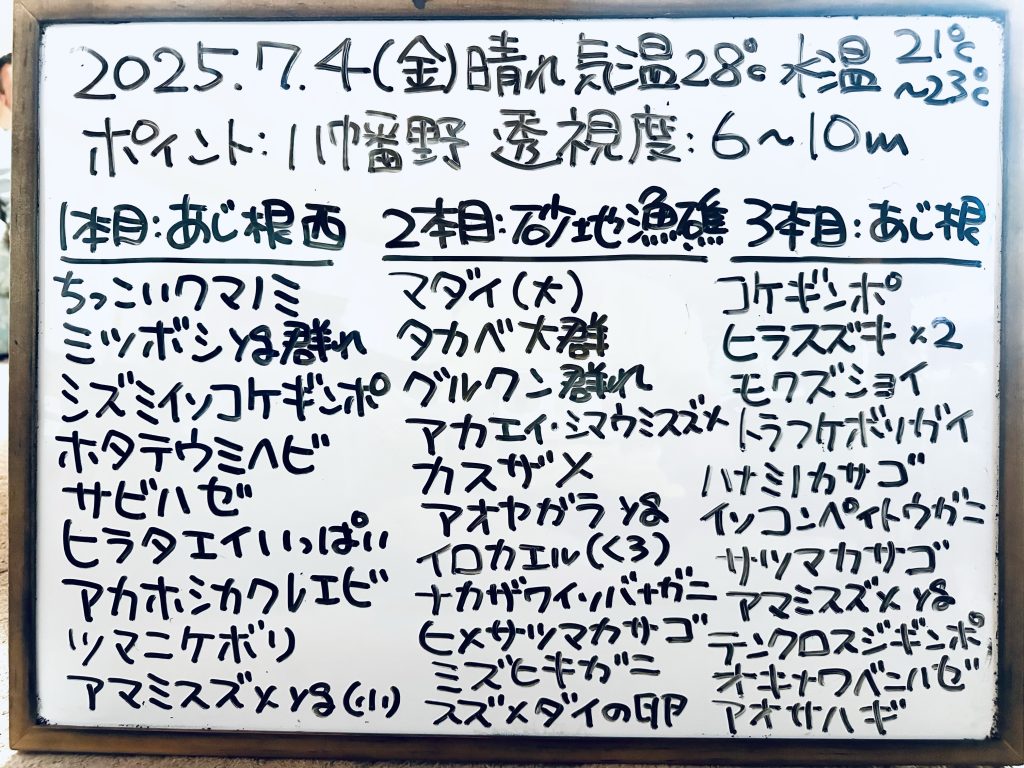 2025.7.4(金)晴れ 気温28℃ 水温 21℃~23℃
ポイント:八幡野 透視度:6~10m
1本目:あじ根西
ちっこいクマノミ
ミツボシyg群れ
シズミイソコケギンポ
ホタテウミヘビ
サビハゼ
ヒラタエイいっぱい
アカホシカクレエビ
ツマニケボリ
アマミスズメyg(小)
2本目:砂地漁礁
マダイ(大)
タカベ大群
グルクン群れ
アカエイ・シマウミスズメ
カスザメ
アオヤガラyg
イロカエル(くろ)
ナカザワイソバナガニ
ヒメサツマカサゴ
ミズヒキガニ
スズメダイの卵
3本目:あじ根
コケギンポ
ヒラスズキ×2
モクズショイ
トラフケボリガイ
ハナミノカサゴ
イソコンペイトウガニ
サツマカサゴ
アマミスズメyg
テンクロスジギンポ
オキナワベニハゼ
アオサハギ